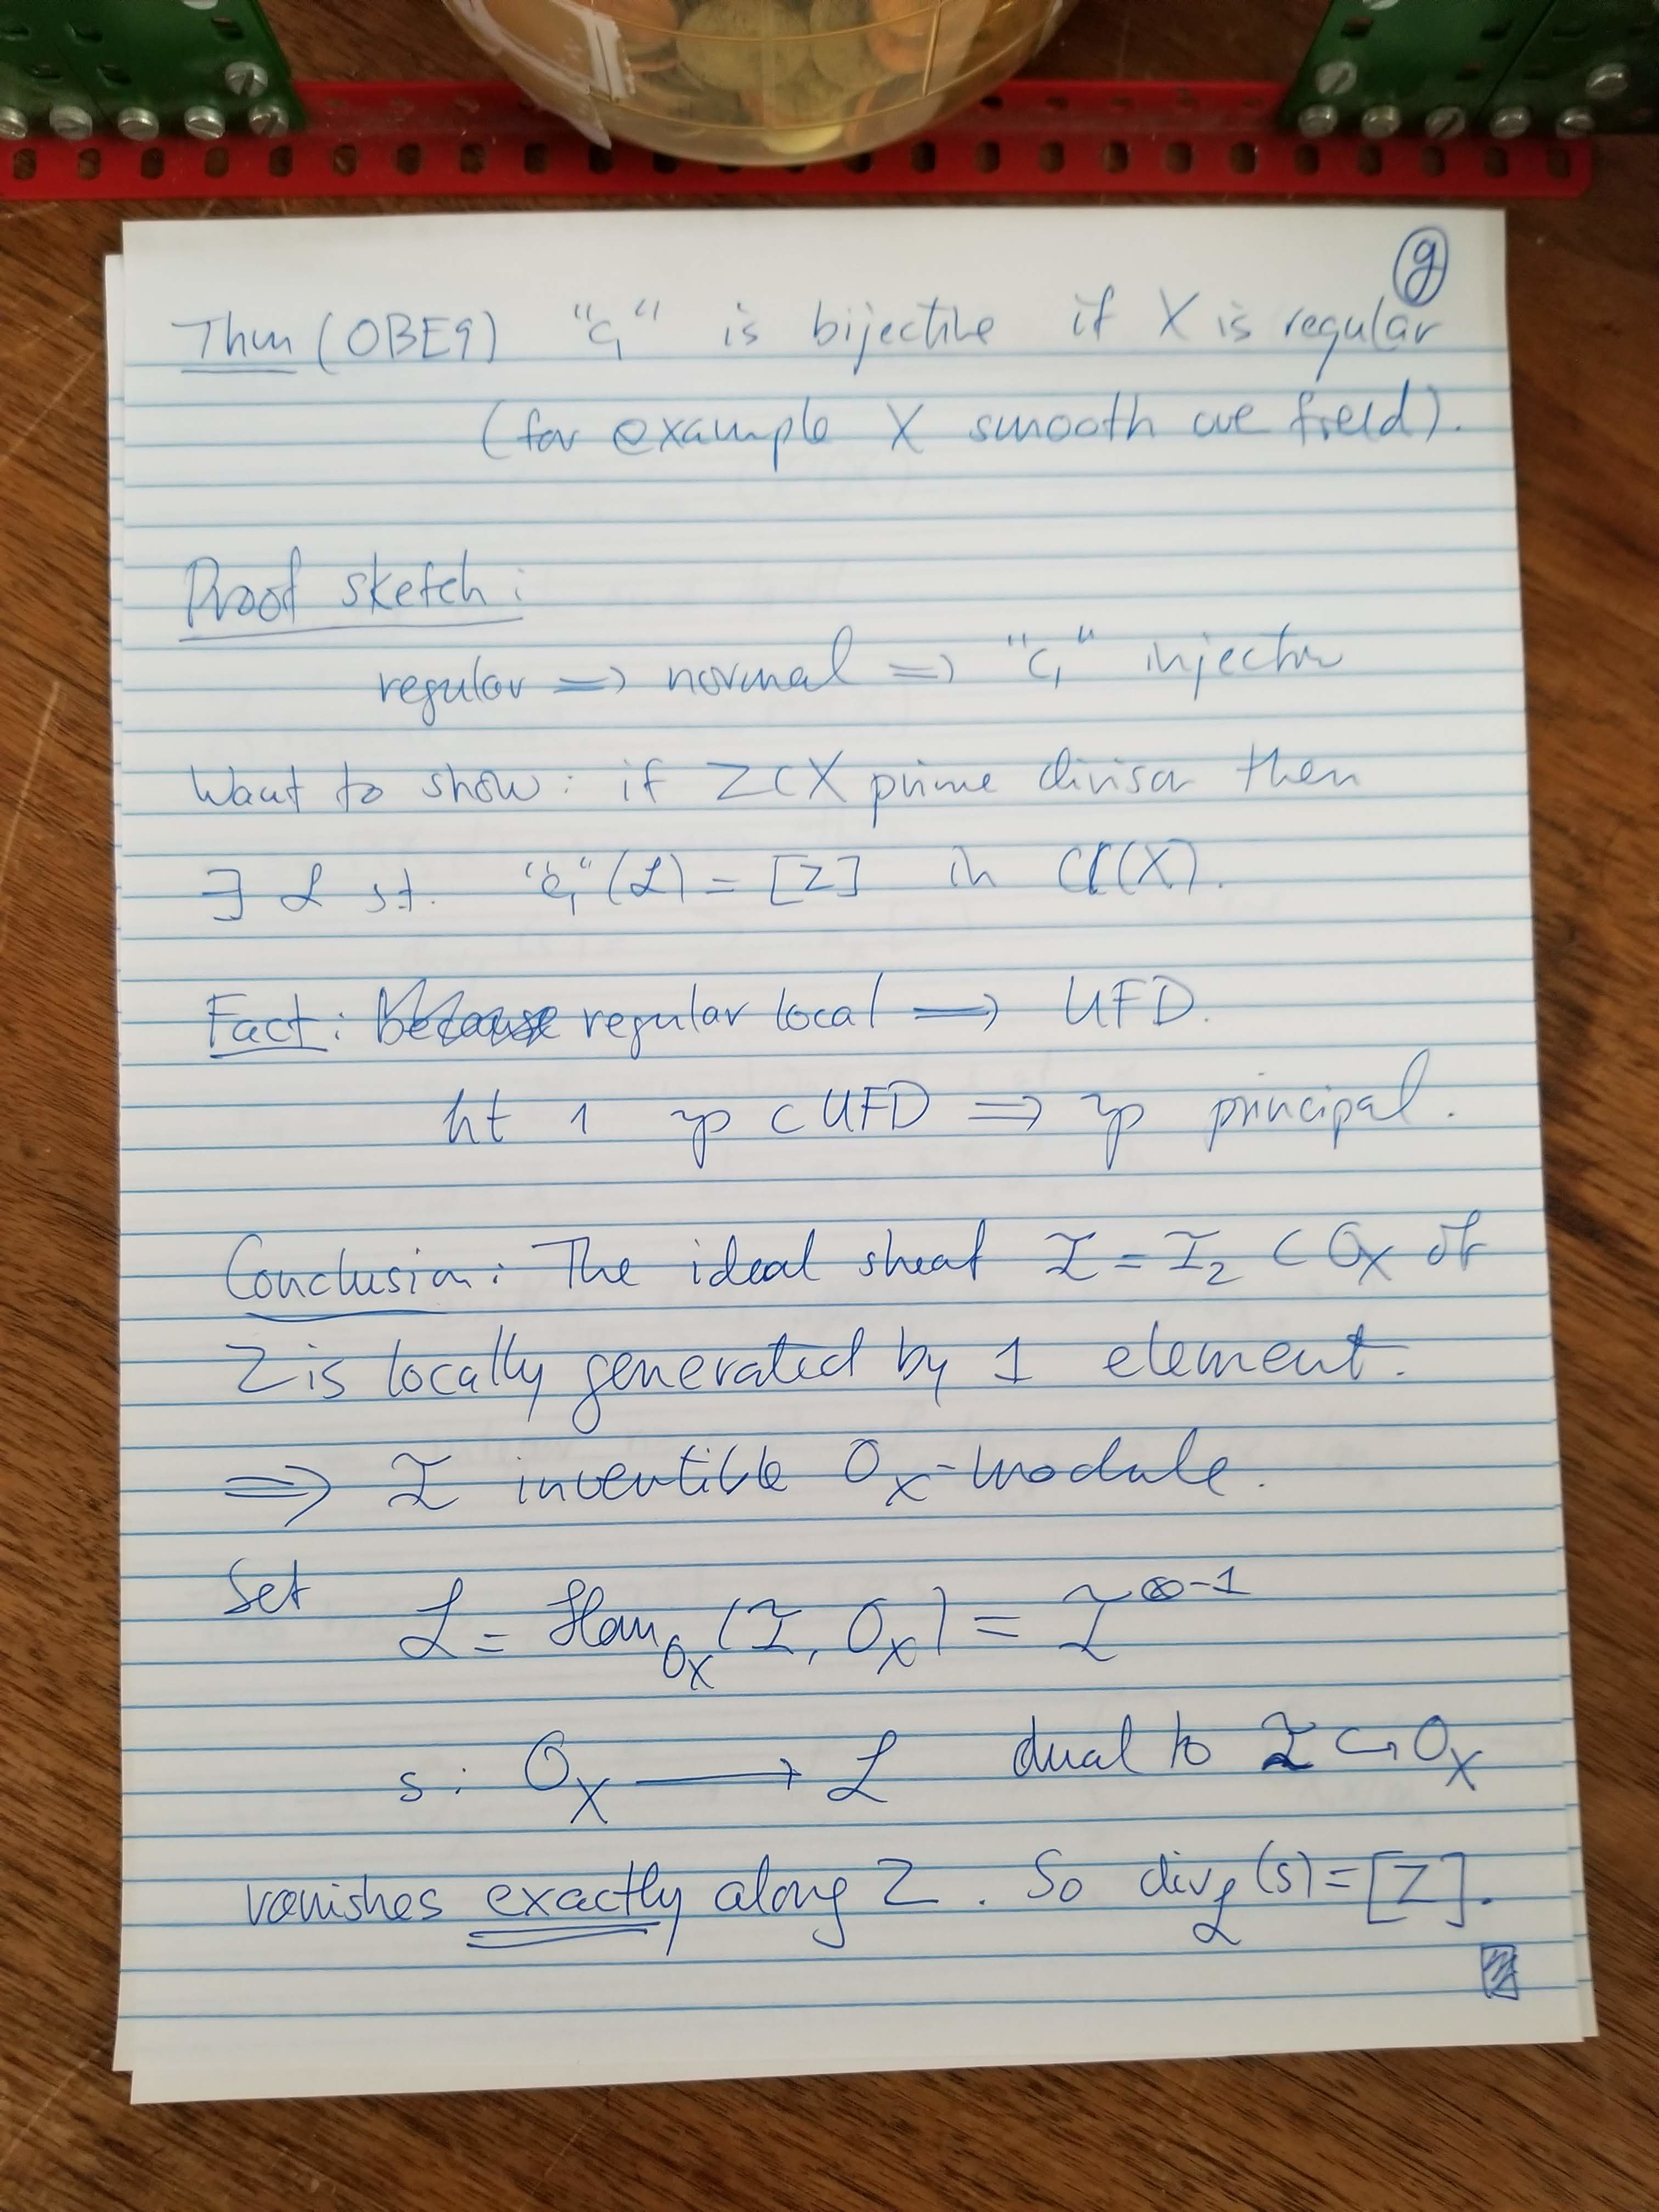 9
Thm (0BE9) "c₁" is bijective if X is regular
(for example X smooth over field).
Proof sketch:
regular ⇒ normal ⇒ "c₁" injective
Want to show: if Z⊂X prime divisor then
∃ ℒ st. "c₁"(ℒ) = [Z] in Cl(X).
Fact: regular local ⟹ UFD.
ht 1 𝔭 ⊂ UFD ⇒ 𝔭 principal.
Conclusion: The ideal sheaf ℐ = ℐ_Z ⊂ O_X of
Z is locally generated by 1 element.
⟹ ℐ invertible O_X-module.
Set ℒ = Hom_{O_X}(ℐ, O_X) = ℐ^{⊗-1}
s: O_X ⟶ ℒ dual to ℐ ↪ O_X
vanishes exactly along Z. So div_ℒ(s) = [Z].